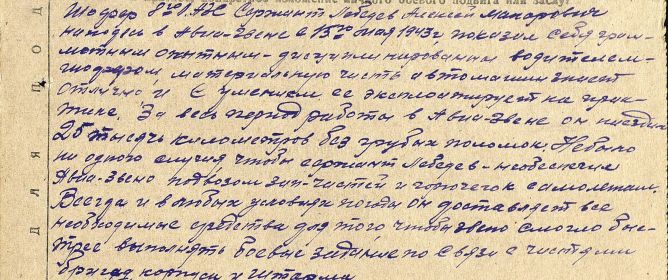 изложение личного боевого подвига или заслуг
Шофер 8го ЛАЭС Сержант Лебедев Алексей Макарович
находясь в Авиа-Звене с 15го мая 1943г показал себя грам-
мотным опытным - дисциплинированным водителем-
шофером, материальную часть автомашин знает
отлично и с умением ее эксплоатирует на прак-
тике. За весь период работы в Авиа-Звене он наездил
25 тысячь километров без грубых поломок. Небыло
ни одного случия чтобы сержант Лебедев - необеспечил
Авиа-Звено подвозом зап-частей и горючего к самолетам.
Всегда и в любых условиях погоды он доставляет все
необходимые средства для того чтобы звено смогло быс-
трее выполнять боевые задание по связи с частями
бригад корпуса и штарма
Д Л Я П О Д